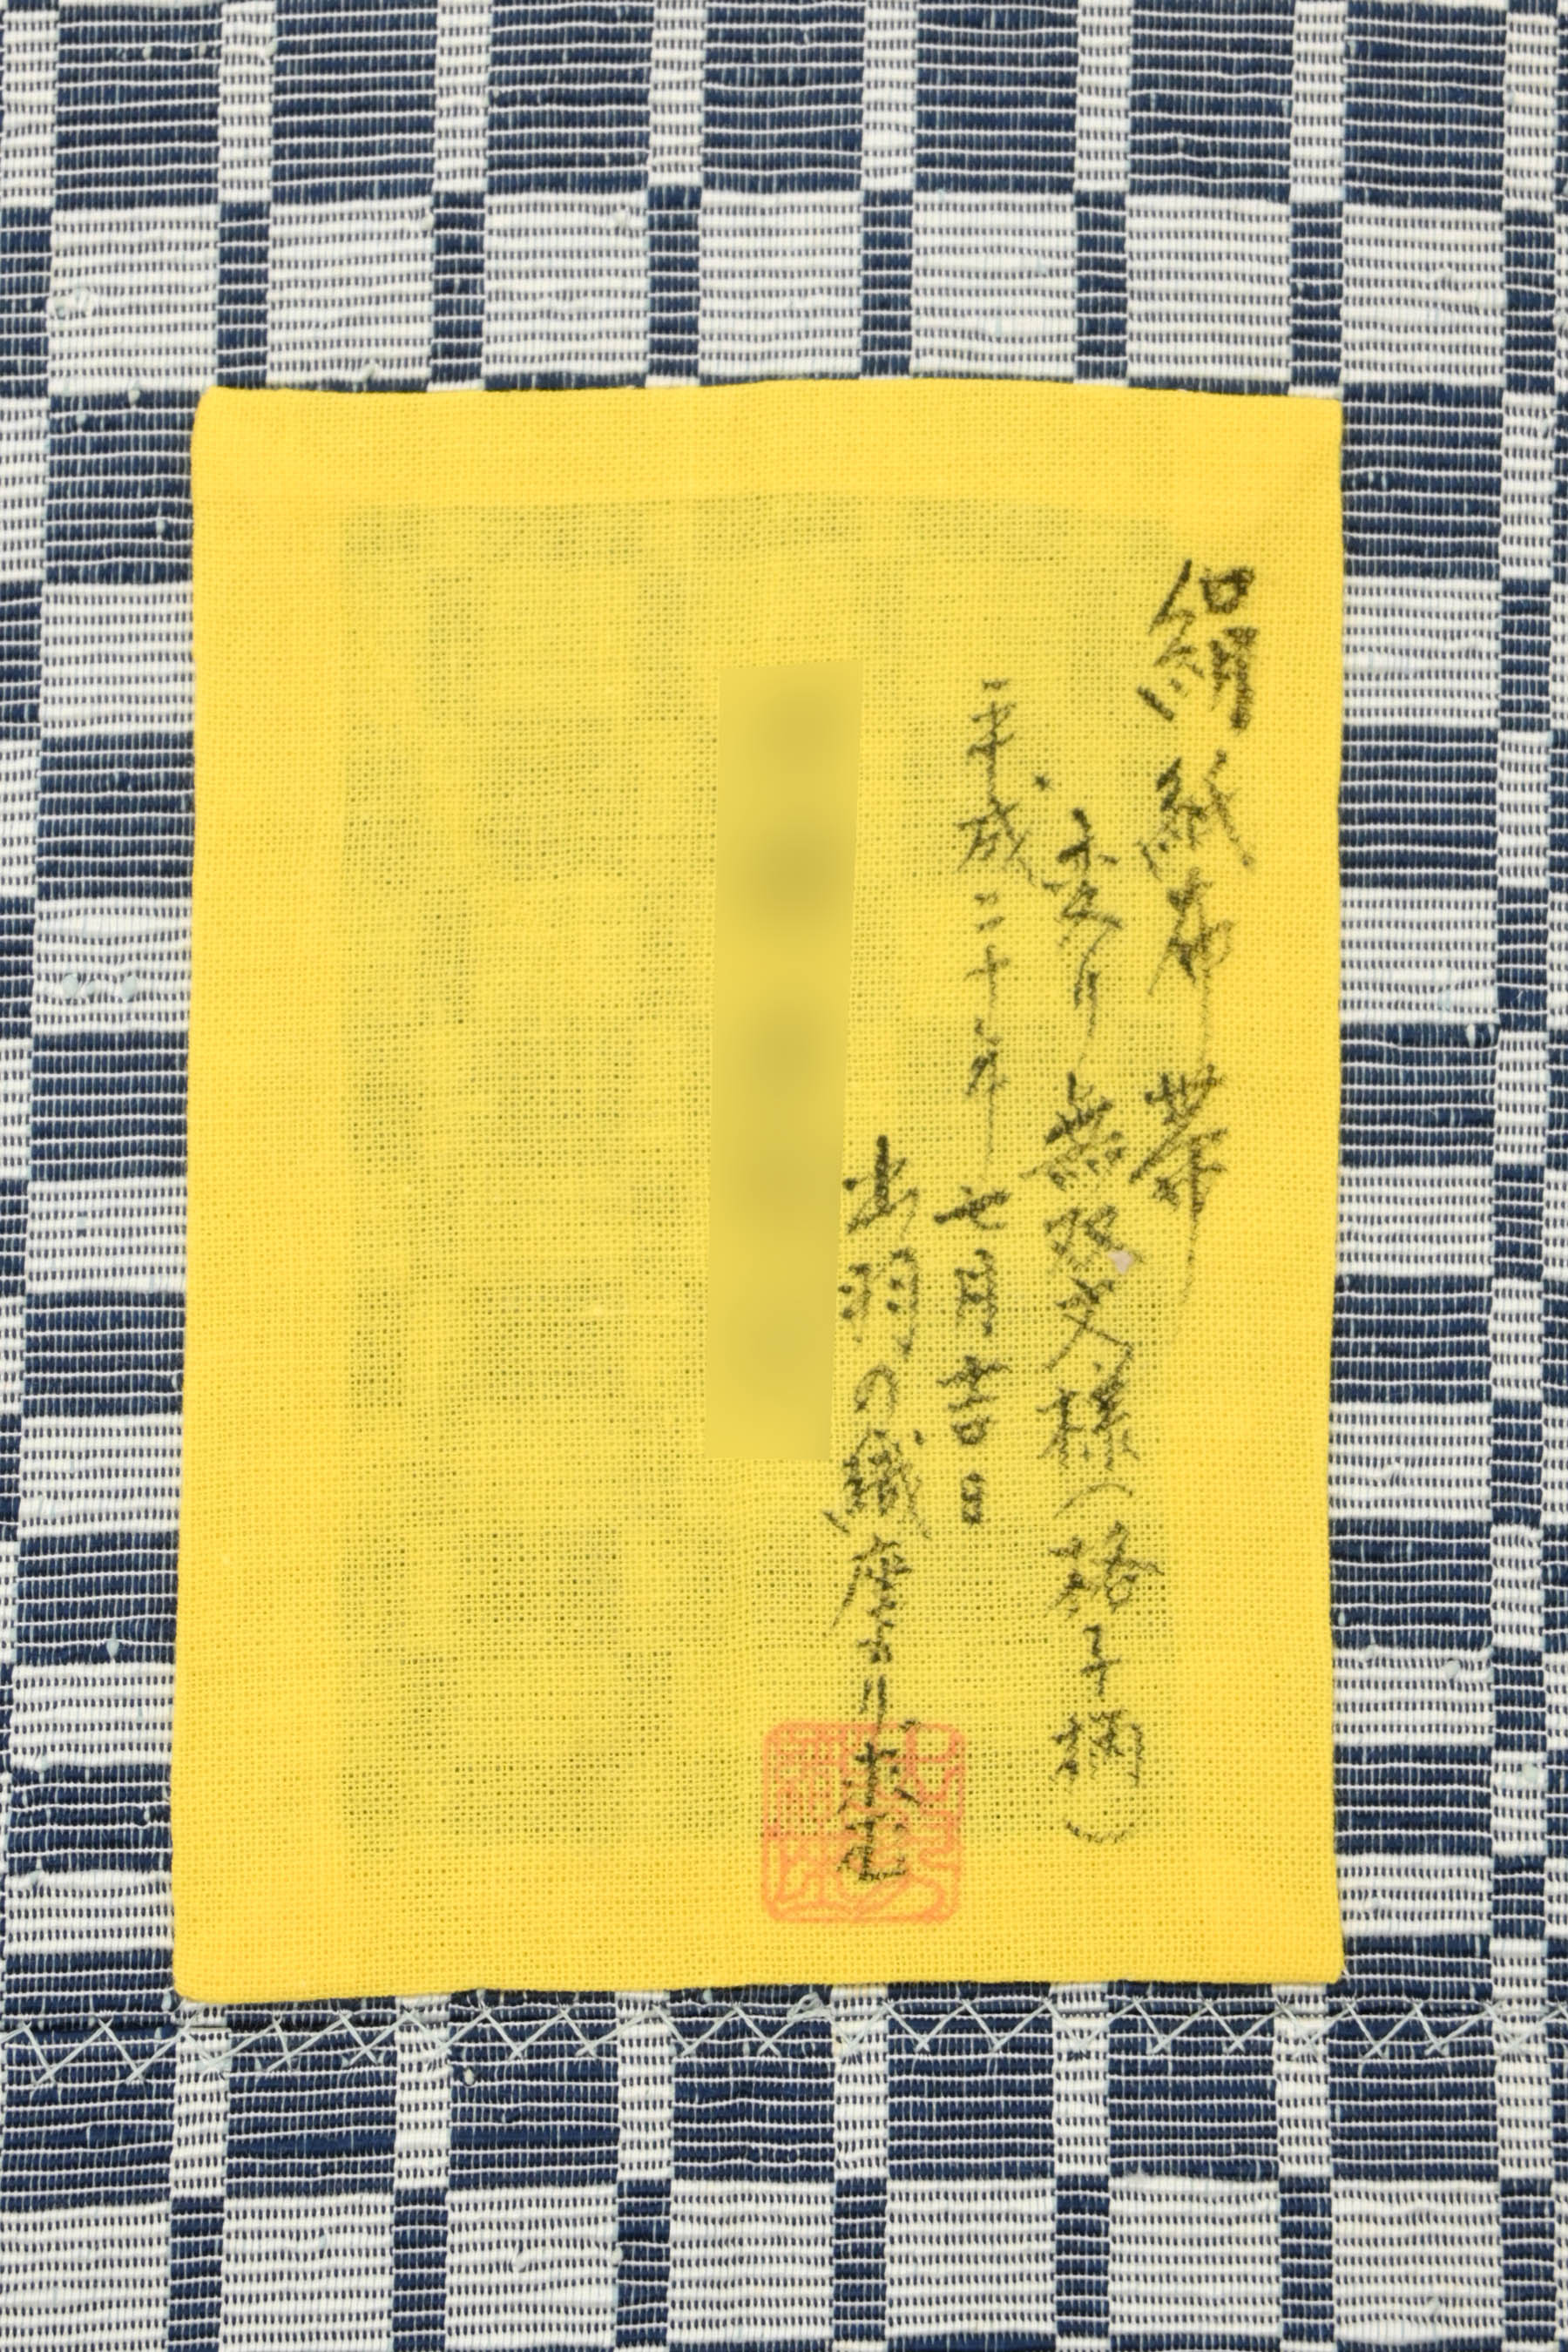 絹紙布 帯
変り無双文様（格子柄）
平成二十年七月吉日
出羽の織座より